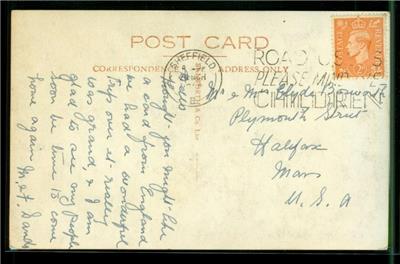 POST CARD
CORRESPONDENCE
ADDRESS ONLY
SHEFFIELD
ROAD USERS
PLEASE MIND THE
CHILDREN
Hello
Thought you might like
a card from England
we had a wonderful
trip over it really
was grand, & I am
glad to see my people
soon be time to come
home again M. & F. Sands
Mr & Mrs Clyde
Plymouth Street
Halifax
Mass
U. S. A